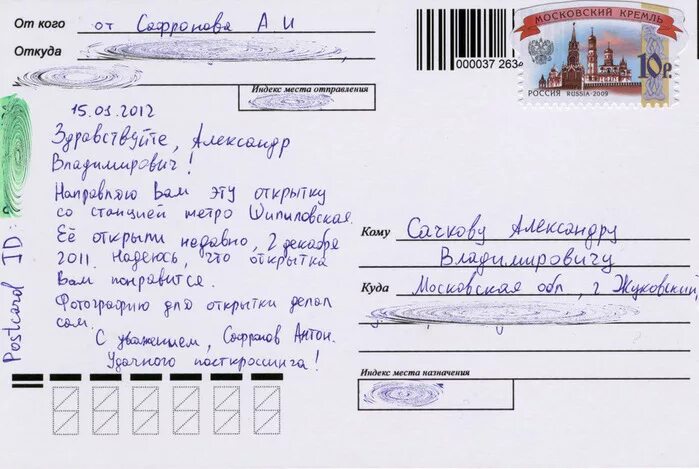 От кого от Сафронова А И
Откуда
Индекс места отправления
000037 263
МОСКОВСКИЙ КРЕМЛЬ
10р.
РОССИЯ RUSSIA·2009
15.03.2012
Здравствуйте, Александр
Владимирович!
Направляю Вам эту открытку
со станцией метро Шипиловская.
Её открыли недавно, 2 декабря
2011. Надеюсь, что открытка
Вам понравится.
Фотографию для открытки делал
сам.
С уважением, Сафронов Антон.
Удачного посткроссинга!
Postcard ID:
Кому Сачкову Александру
Владимировичу
Куда Московская обл, г Жуковский
Индекс места назначения